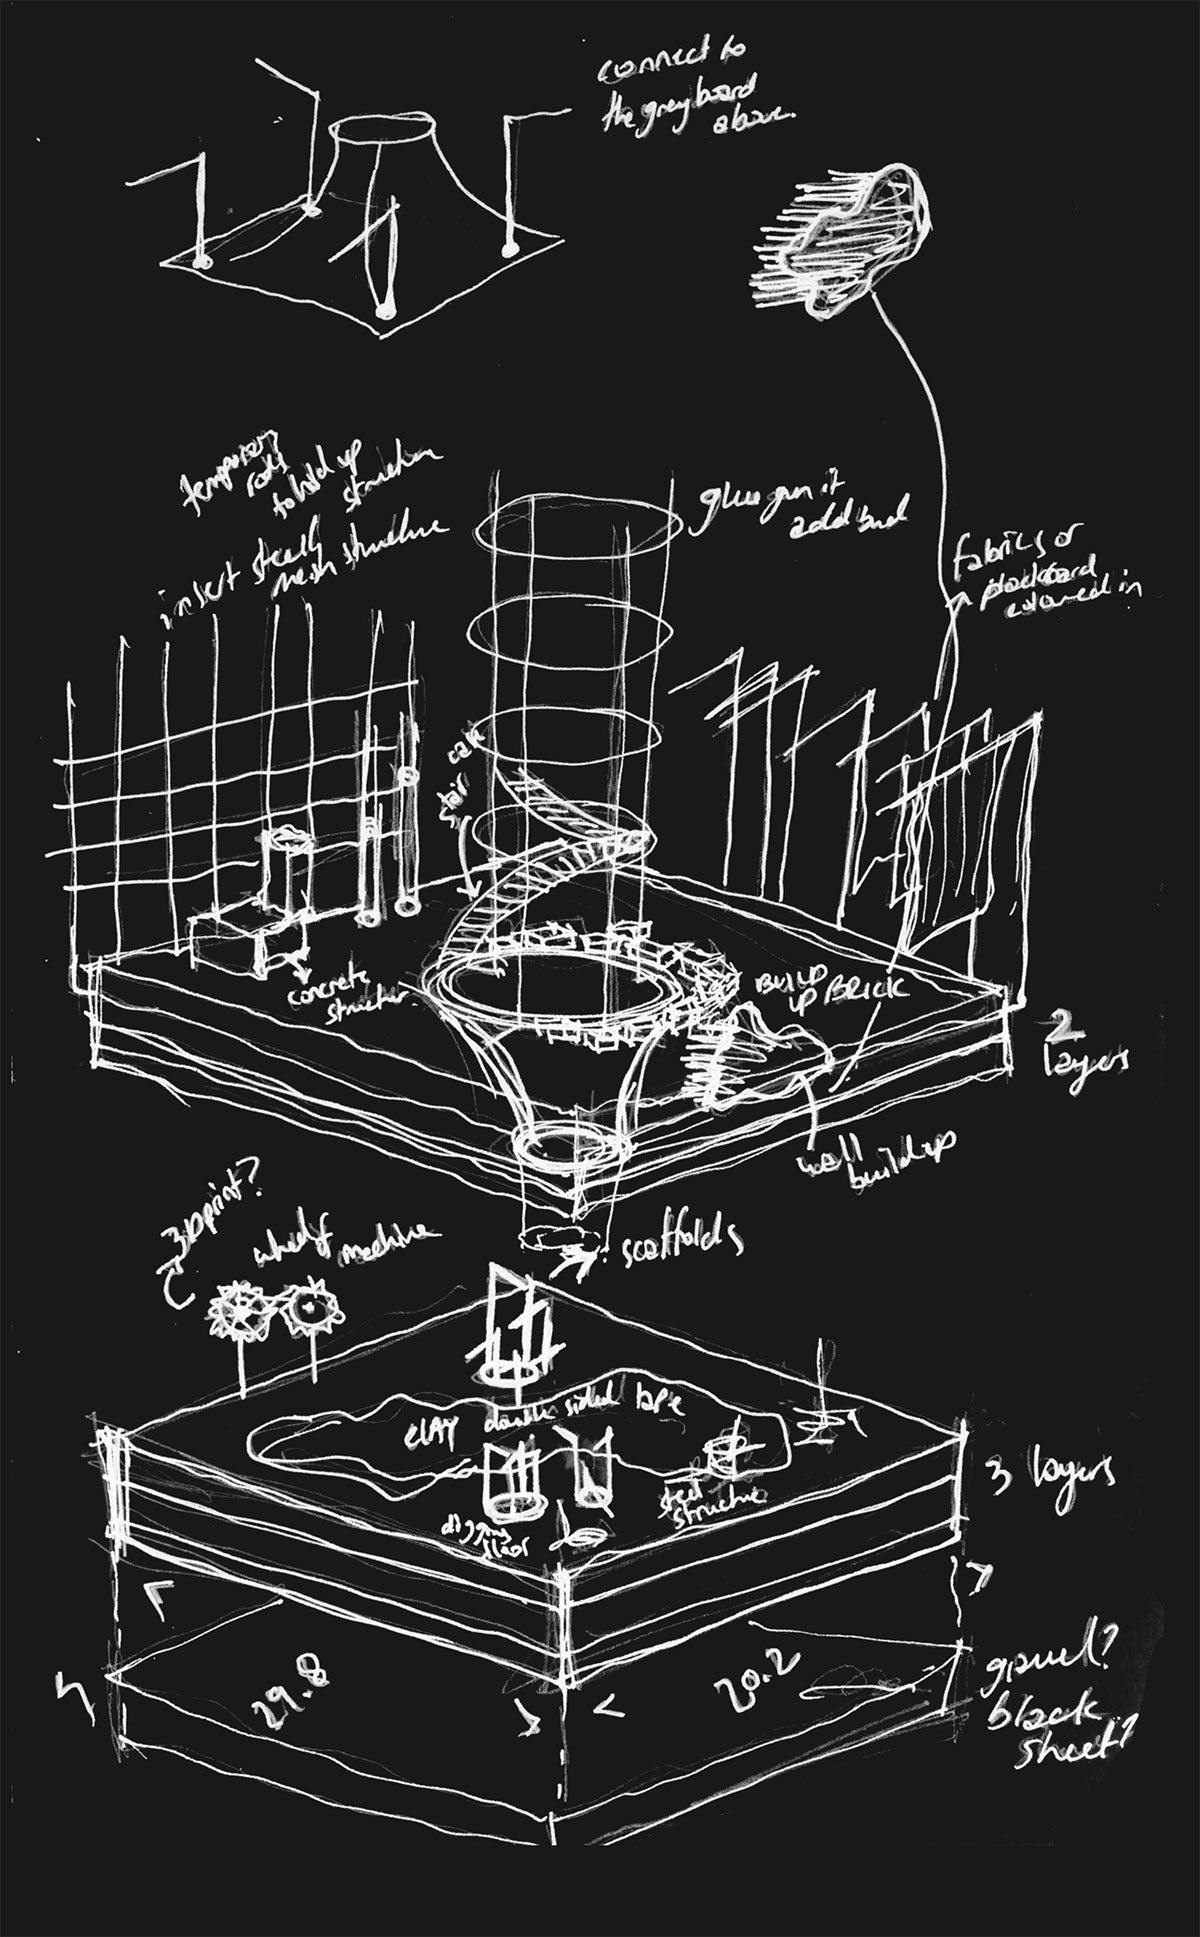 connect to
the greyboard
above.
temporary
rods
to hold up
structure
insert steelly
mesh structure
glue gun it
add bind
fabrics or
blackboard
coloured in
stair case
concrete
structure
BUILD
UP BRICK
2
layers
wall
buildup
3D print?
wheel of
machine
scaffolds
CLAY double sided tape
steel
structure
digging
floor
3 layers
29.8
20.2
gravel?
black
sheet?